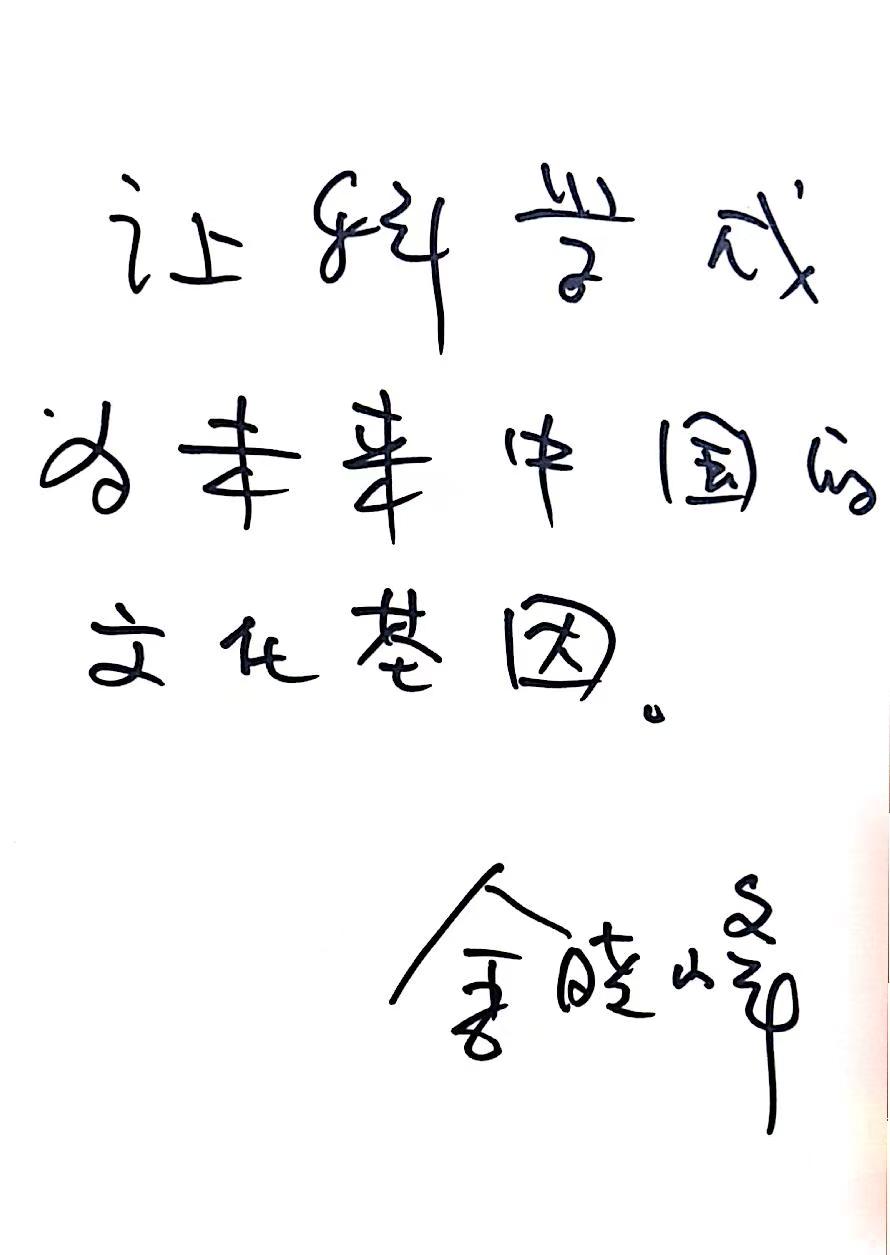 让科学成
为未来中国的
文化基因。
晓峰